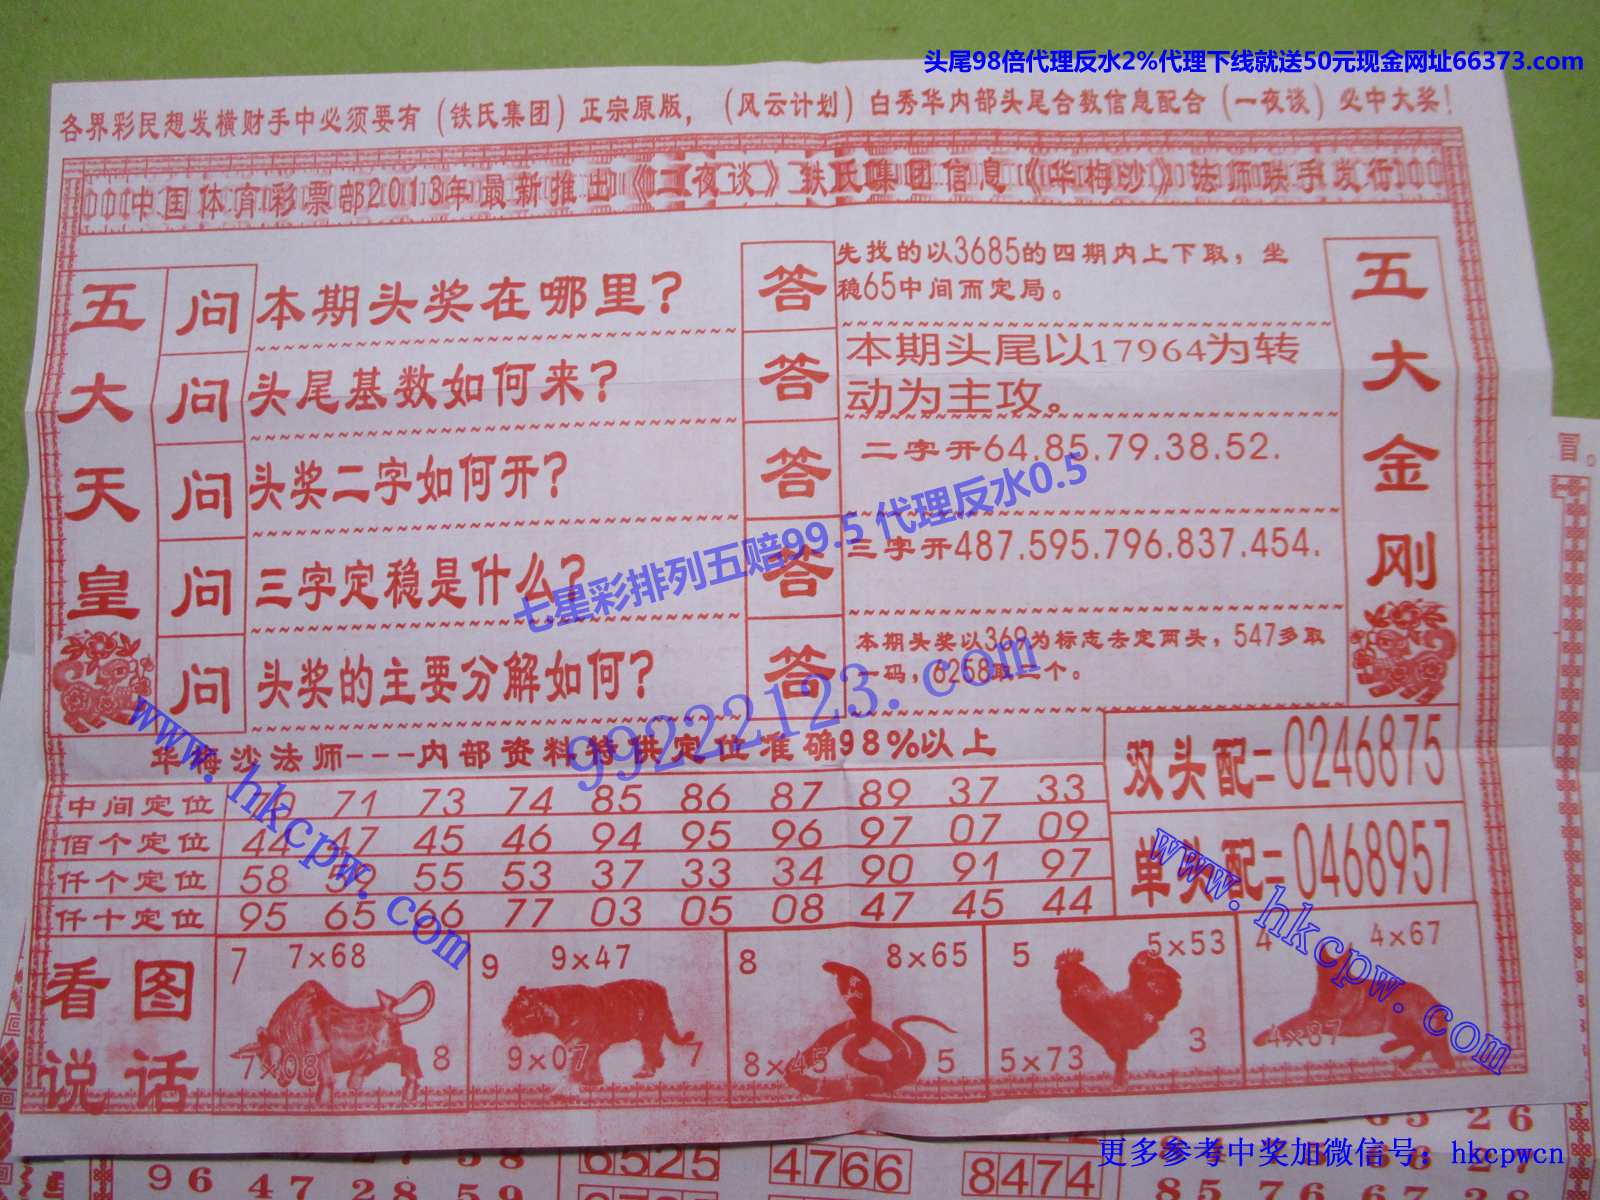 头尾98倍代理反水2%代理下线就送50元现金网址66373.com
各界彩民想发横财手中必须要有(铁氏集团)正宗原版，(风云计划)白秀华内部头尾合数信息配合(一夜谈)必中大奖！
中国体育彩票部2013年最新推出《一夜谈》铁氏集团信息《华梅沙》法师联手发行
五大天皇
问 本期头奖在哪里？
答 先找的以3685的四期内上下取，坐
稳65中间而定局。
问 头尾基数如何来？
答 本期头尾以17964为转
动为主攻。
问 头奖二字如何开？
答 二字开64.85.79.38.52.
问 三字定稳是什么？
答 三字开487.595.796.837.454.
问 头奖的主要分解如何？
答 本期头奖以369为标志去定两头，547多取
一码，6258取二个。
五大金刚
七星彩排列五赔99.5 代理反水0.5
99222123.com
www.hkcpw.com
华梅沙法师---内部资料特供定位准确98%以上
中间定位 70 71 73 74 85 86 87 89 37 33
佰个定位 44 47 45 46 94 95 96 97 07 09
仟个定位 58 55 53 37 33 34 90 91 97
仟十定位 95 65 66 77 03 05 08 47 45 44
双头配=0246875
单头配=0468957
www.hkcpw.com
看图
说话
7 7×68
7×08 8
9 9×47
9×07 7
8 8×65
8×45 5
5 5×53
5×73 3
4 4×67
4×87
更多参考中奖加微信号：hkcpwcn
6525 4766 8474
96 47 28 59